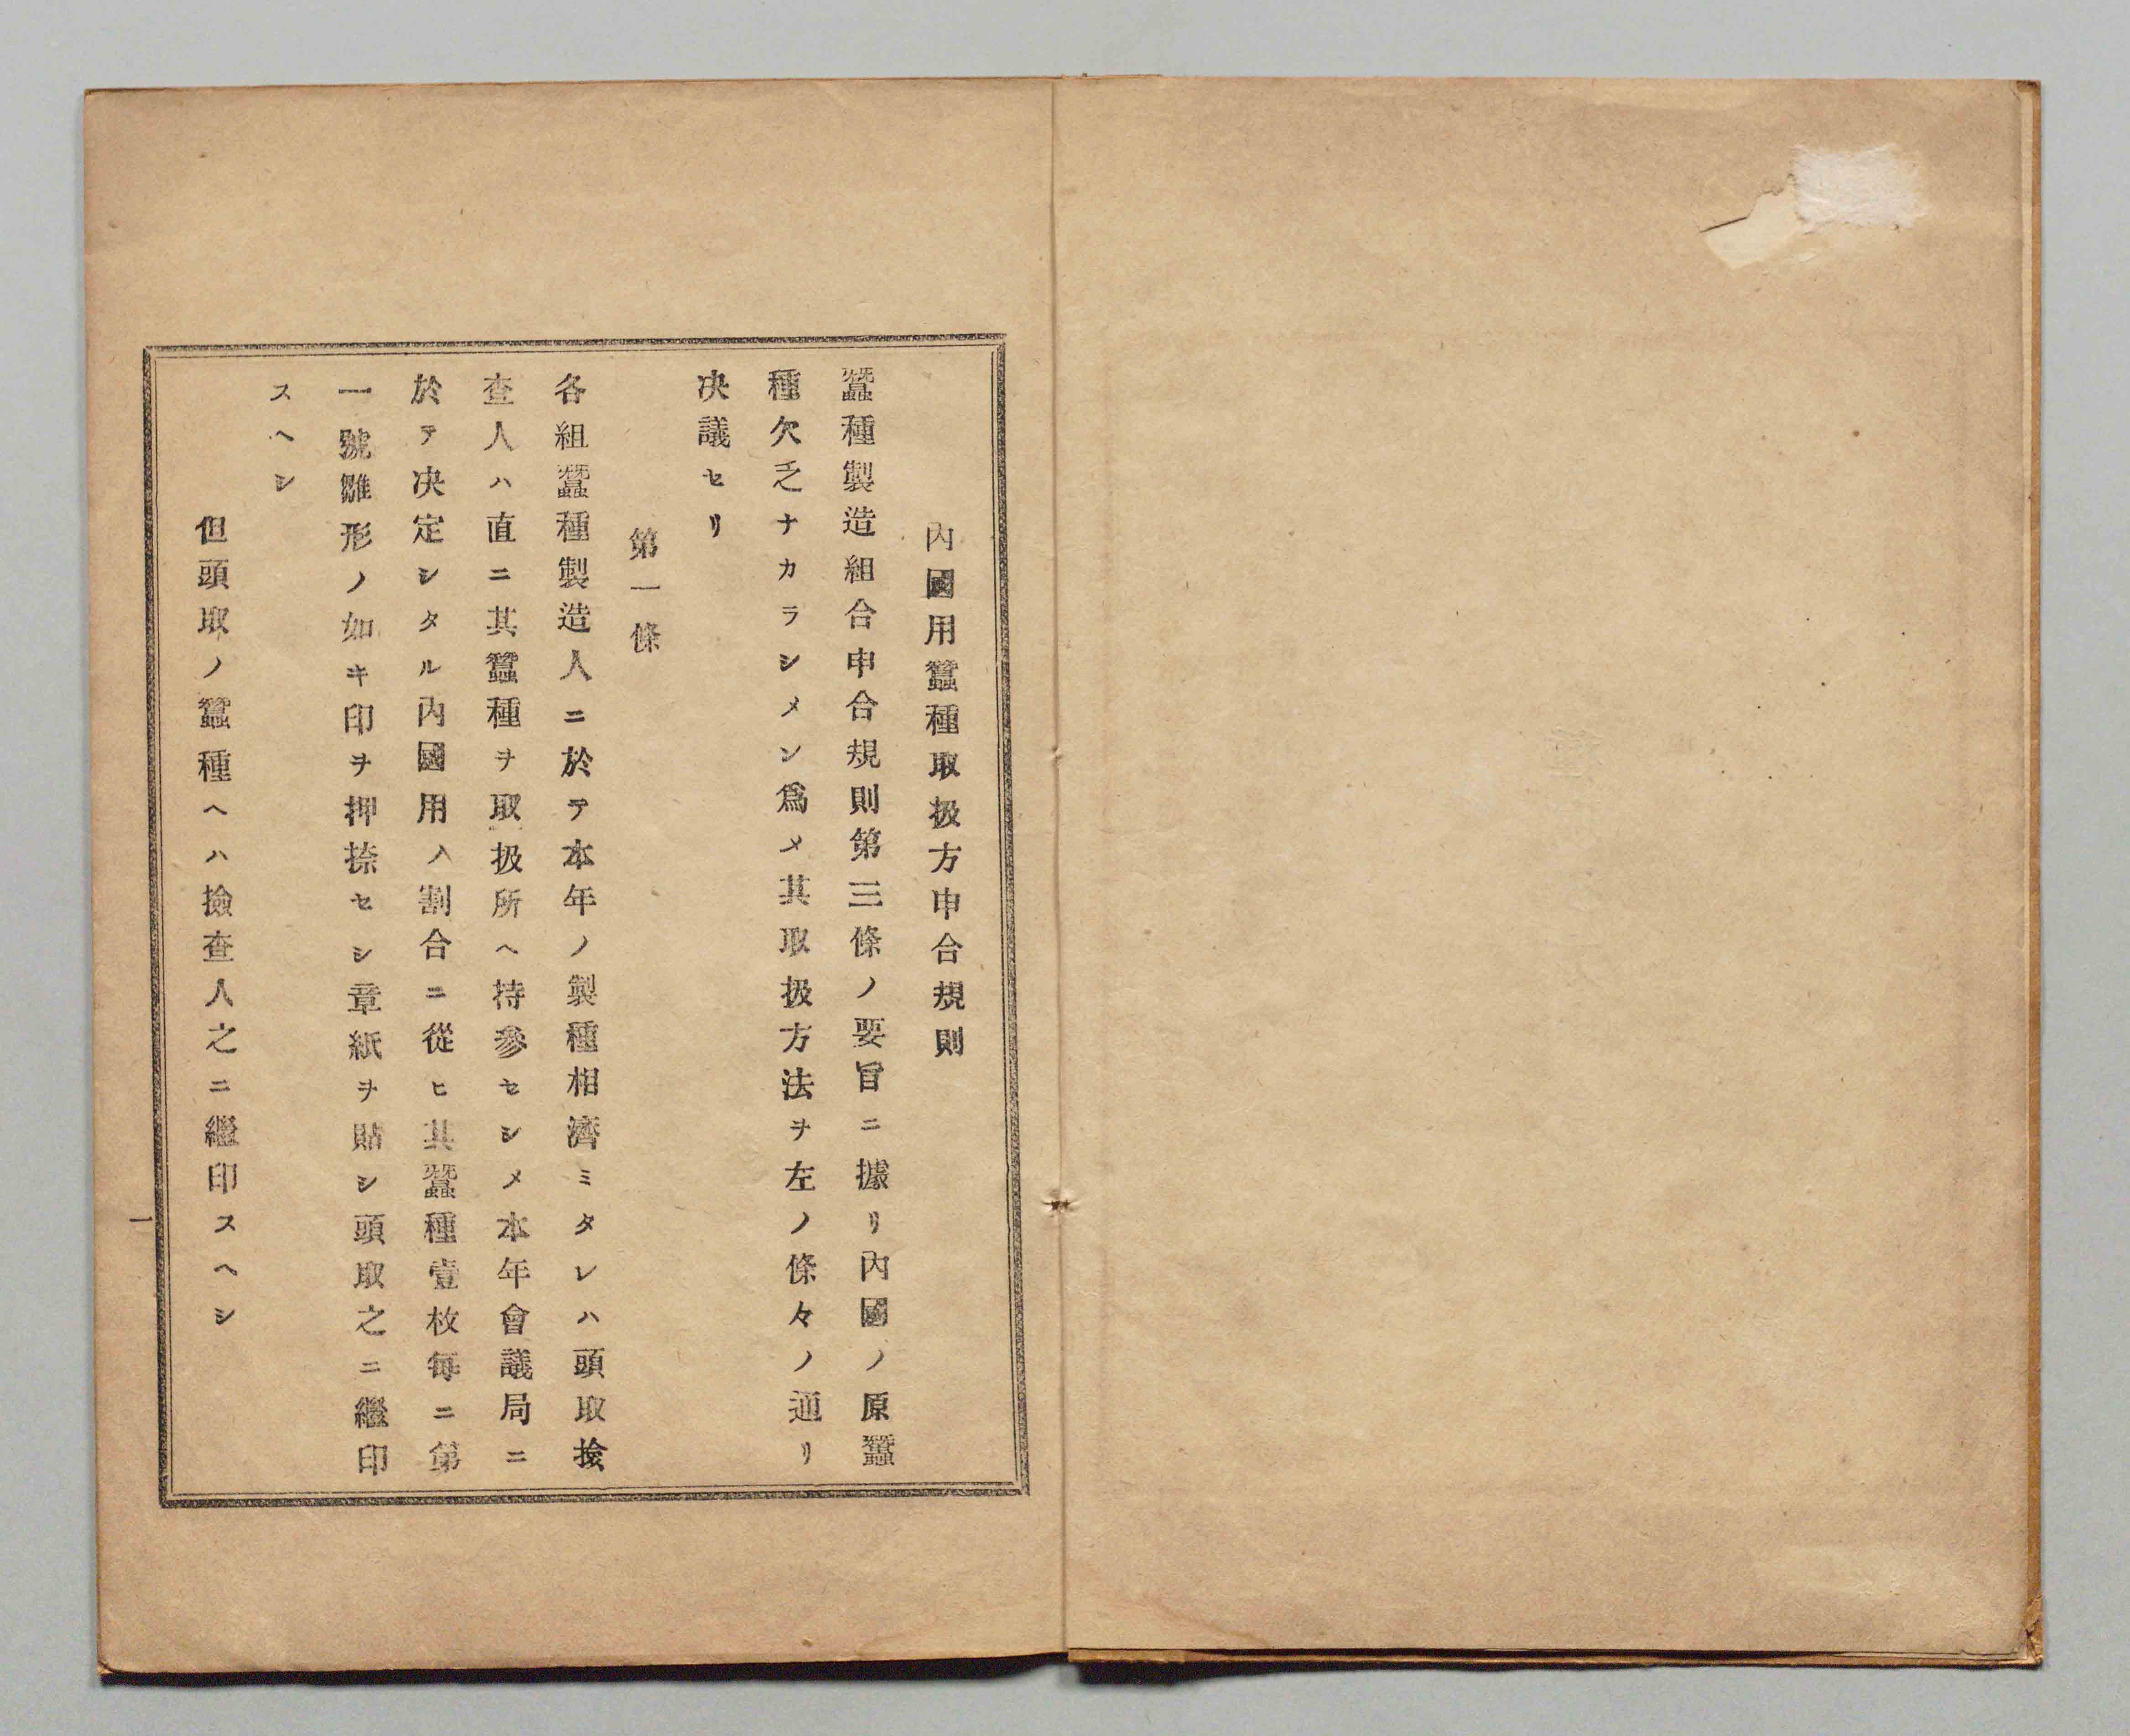 內國用蠶種取扱方申合規則
蠶種製造組合申合規則第三條ノ要旨ニ據リ內國ノ原蠶
種欠乏ナカラシメン爲メ其取扱方法ヲ左ノ條々ノ通リ
决議セリ
第一條
各組蠶種製造人ニ於テ本年ノ製種相濟ミタレハ頭取撿
查人ハ直ニ其蠶種ヲ取扱所ヘ持參セシメ本年會議局ニ
於テ决定シタル內國用ノ割合ニ從ヒ其蠶種壹枚每ニ第
一號雛形ノ如キ印ヲ押捺セシ章紙ヲ貼シ頭取之ニ繼印
スヘシ
但頭取ノ蠶種ヘハ撿查人之ニ繼印スヘシ
一